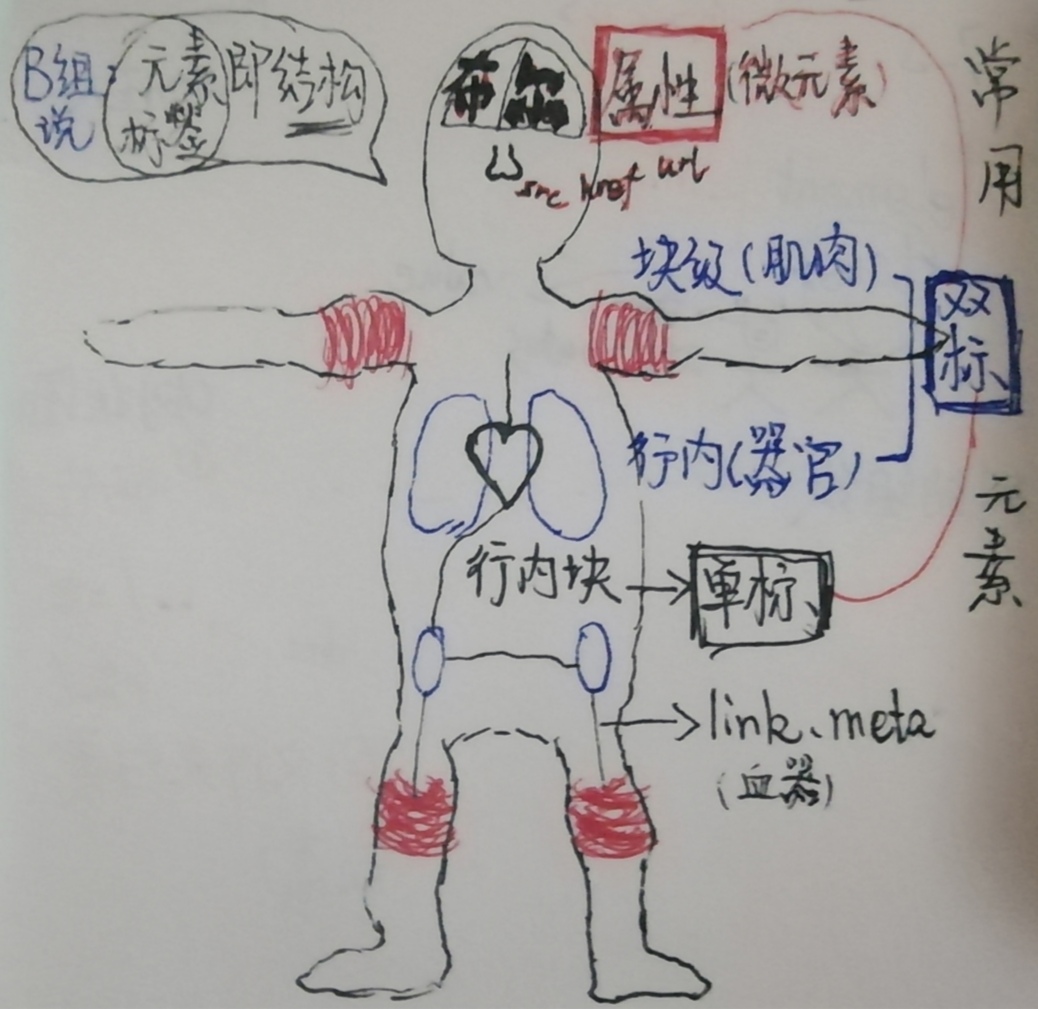 B组说
元素标签
即结构
布尔
属性
(微元素)
src href url
常用
元素
块级(肌肉)
双标
行内(器官)
行内块
单标
link、meta
(血器)